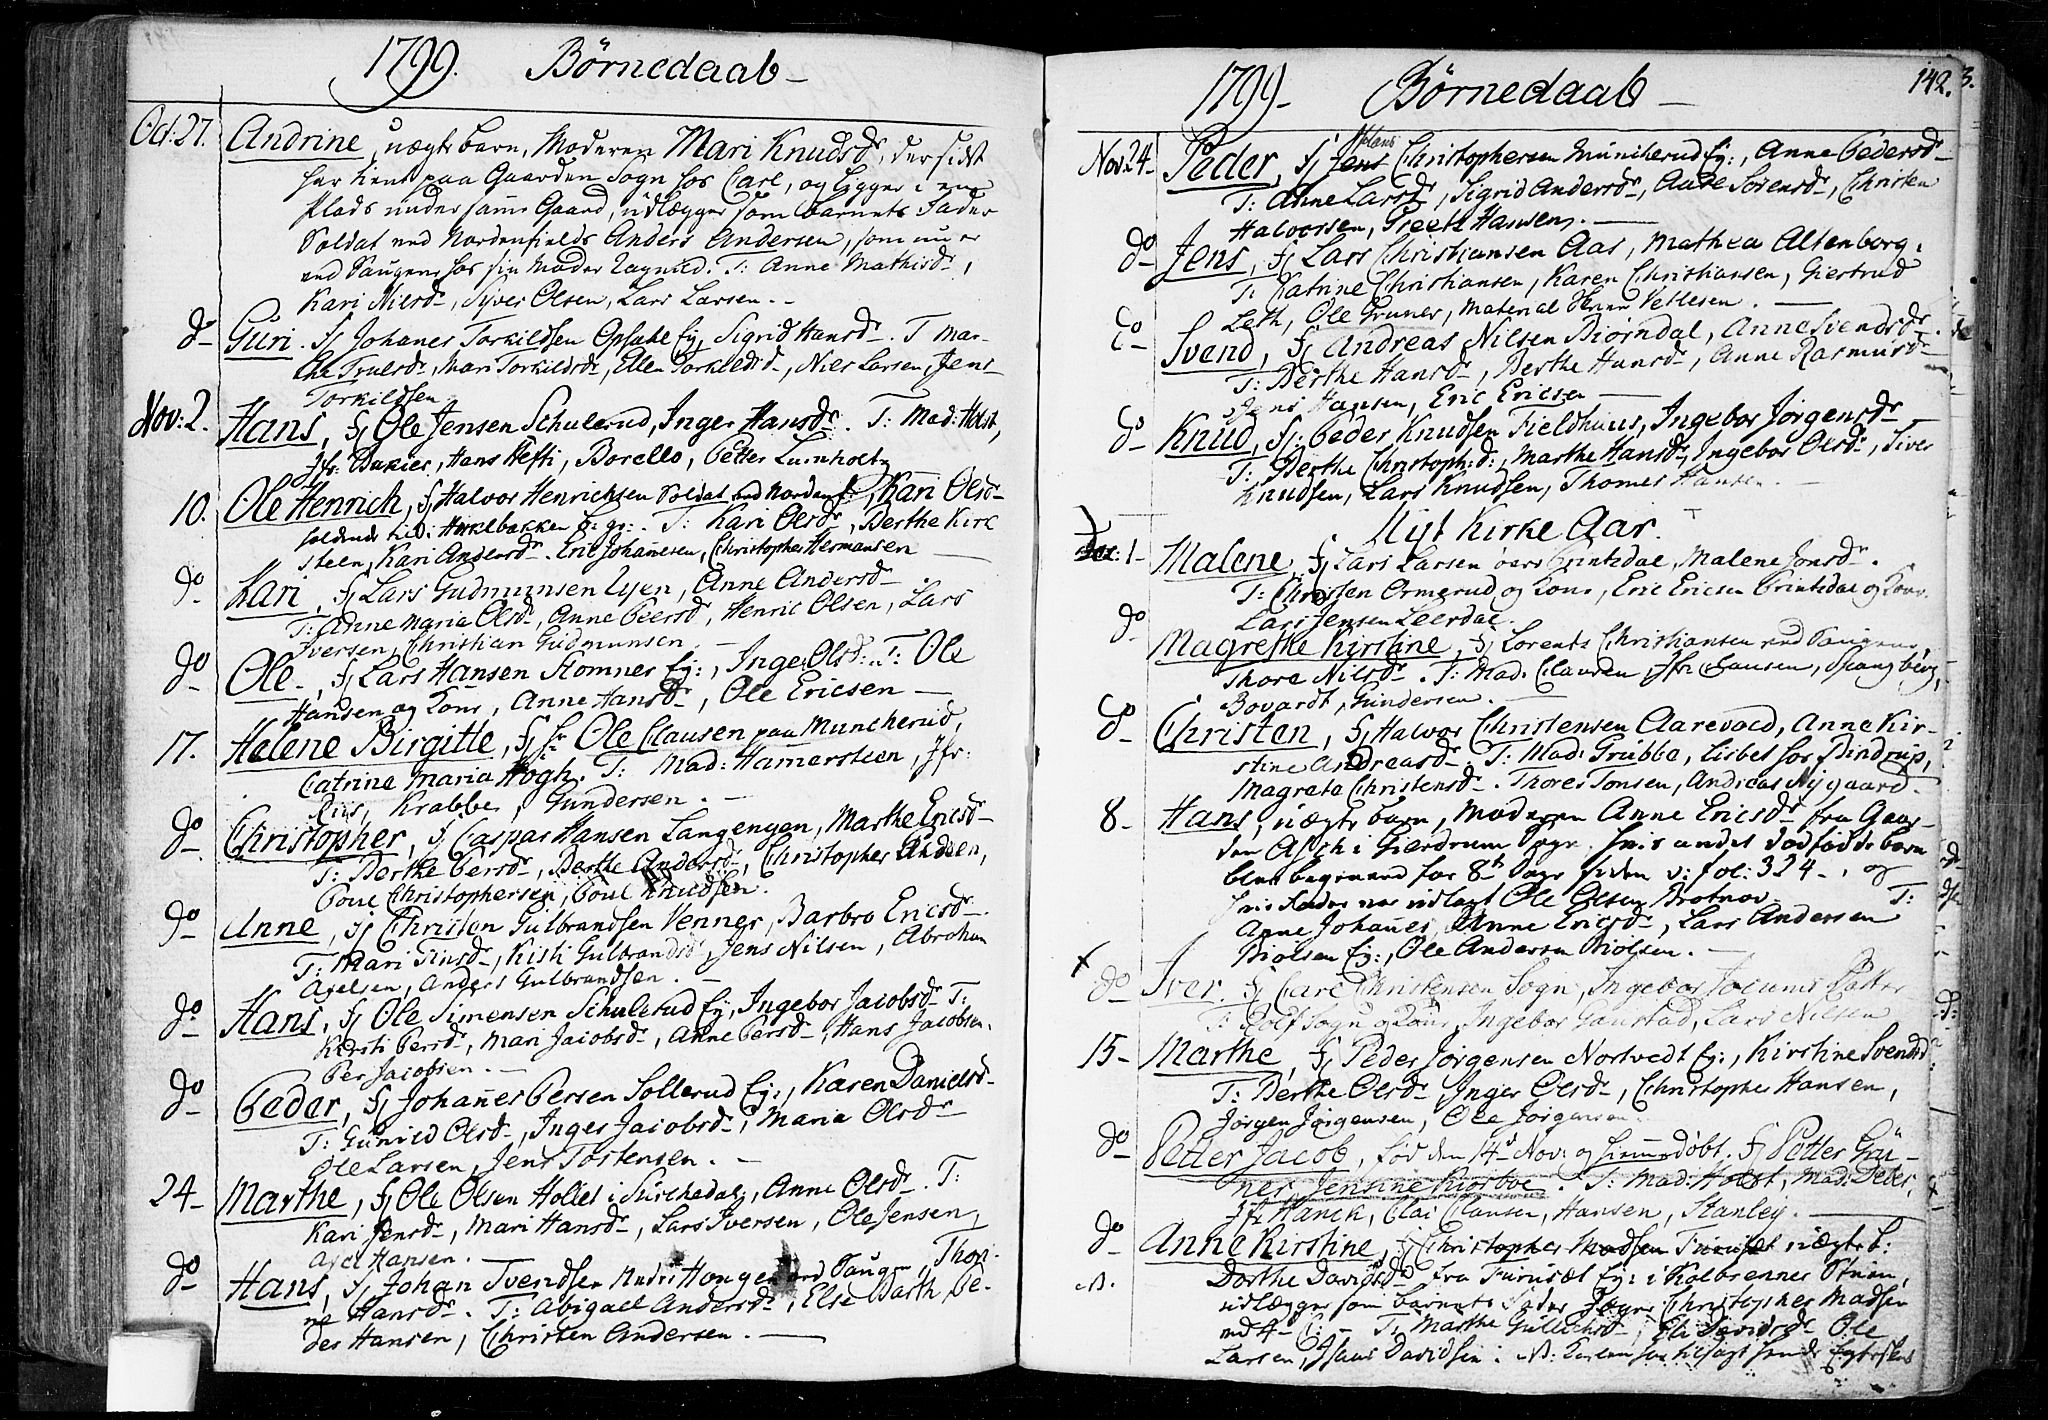 1799. Børnedaab
Oct: 27. Andrine, uægte barn, Moderen Mari Knudsdr, der sidst
har tient paa Gaarden Sogn hos Carl, og ligger i en
Plads under samme Gaard, udlægger som barnets Fader
Soldat ved Nordenfields Anders Andersen, som nu er
ved Saugene hos sin Moder T: Anne Mathisdr,
Kari Nilsdr, Syver Olsen, Lars Larsen.
do Guri. F: Johanes Torkildsen Opsahl Ej, Sigrid Hansdr. T Mar-
the Truelsdr, Mari Torkildsdr, Ellen Torkildsd, Niels Larsen, Jens
Torkildsen
Nov: 2. Hans, F: Ole Jensen Schulerud, Inger Hansdr. T: Mad: Holst,
Jfr: Hans Hefti, Borello, Petter Lumholtz
10. Ole Henrich, F: Halvor Henrichsen Soldat ved Nordenf:, Kari Olsdr
Hoklebakken T: Kari Olsdr, Berthe Kirk
steen, Kari Andersdr. Eric Johannesen, Christopher Hermansen
do Kari, F: Lars Gudmunsen Anne Andersdr
T: Anne Maria Olsdr, Anne Peersd, Henric Olsen, Lars
Iversen, Christian Gudmunsen
do Ole, F: Lars Hansen Stomner Ej:, Inge Olsd: T: Ole
Hansen og Kone, Anne Hansdr, Ole Ericsen
17. Helene Birgitte, F: Sr Ole Clausen paa Muncherud,
Catrine Maria Høgh. T: Mad: Hamersteen, Jfr:
Riis, Krabbe, Gundersen.
do Christopher, F: Caspar Hansen Langengen, Marthe Ericsdr
T: Berthe Persdr, Berthe Andersdr, Christopher Andsen,
Poul Christophersen, Poul Knudsen.
do Anne, F: Christen Gulbrandsen Venner, Barbro Ericsdr.
T: Mari Finsdr, Kisti Gulbrandsd, Jens Nilsen, Abraham
Axelsen, Anders Gulbrandsen.
do Hans, F: Ole Simensen Schulerud Ej, Ingebor Jacobsdr T:
Kirsti Persdr, Mari Jacobsdr, Anne Persdr, Hans Jacobsen,
Per Jacobsen.
do Peder, F: Johannes Persen Sollerud Ej:, Karen Danielsdr
T: Gunild Olsdr, Inger Jacobsdr, Maria Olsdr
Ole Larsen, Jens Tostensen.
24 Marthe, F: Ole Olsen Hollet i Sørchedalen, Anne Olsdr. T:
Kari Jensdr, Mari Hansdr, Lars Iversen, Ole Jensen,
Axel Hansen.
do Hans, F: Johan Svendsen ved Saugen, Thori-
ne Hansdr. T: Abigael Andersdr, Else Barth, Pe-
der Hansen, Christen Andersen.
1799 Børnedaab 142. 3.
Nov. 24 Peder, F: Jens Hans Christophersen Muncherud Ej:, Anne Pedersdr
T: Anne Larsdr, Sigrid Andersdr, Aase Sørensdr, Christen
Halvorsen, Hansen.
do Jens, F: Lars Christiansen Aas, Mathea Altenborg,
T: Catrine Christiansen, Karen Christiansen, Giertrud
Leth, Ole Gruner, Material Vetlesen.
do Svend, F: Andreas Nilsen Biørndal, Anne Svendsdr.
T: Berthe Hansdr, Berthe Hansdr, Anne Rasmusdr
Jens Hansen, Eric Ericsen
do Knud, F: Peder Knudsen Fieldhuus, Ingebor Jørgensdr
T: Berthe Christoph:d:, Marthe Hansdr, Ingebor Olsdr, Siver
Knudsen, Lars Knudsen, Thomes Hansen.
Nyt Kirke Aar.
Dec: 1 Malene, F: Lars Larsen Malene Jonsdr.
T: Christen Ormerud og Kone, Eric Ericsen Brintsdal og Kone
Lars Jensen Leerdal.
do Magrethe Kirstine, F: Lorentz Christiansen ved Saugene,
Thore Nilsdr. T: Mad. Clausen, Jfr: Clausen, Spangberg,
Bovardt, Gundersen.
do Christen, F: Halvor Christensen Aarevold, Anne Kir-
stine Andreasdr. T: Mad: Grubbe, Lisbet hos Bindrup,
Magrete Christensdr. Thores Tonsen, Andreas Nygaard.
8 Hans, uægte barn, Moderen Anne Ericsdr fra Gaar-
den Asch i Gierdrum Sogn. hvis andet dødfødde barn
blev begravet for 8t Dage siden v: fol: 324. og
hvis Fader var udlagt Ole Olsen Brotnov T:
Anne Johanes, Anne Ericsdr, Lars Andersen
Biølsen Ej:, Ole Andersen Biølsen.
do Iver. F: Carl Christensen Sogn, Ingebor
T: Rolf Sogn og Kone, Ingebor Gaustad, Lars Nilsen
15 Marthe, F: Peder Jørgensen Nortvedt Ej:, Kirstine Svendsd
T: Berthe Olsdr, Inger Olsdr, Christopher Hansen,
Jørgen Jørgensen, Ole Jørgensen
do Petter Jacob, fød den 14d Nov: og hiemmedøbt. F: Petter Grü-
ner, Jensine T: Mad: Holst, Mad: Peter,
Jfr Hanck, Clai Clausen, Hansen, Stanley.
do Anne Kirstine, F: Christopher Madsen Furuset uægte b:
NB. Dorthe Davidsdr fra Furuset Ej: i Kolbrennes Stuen,
udlægger som barnets Fader Christopher Madsen
T: Marthe Gullichsdr, Eli Davidsdr Ole
Larsen, Isaac Davidsen.